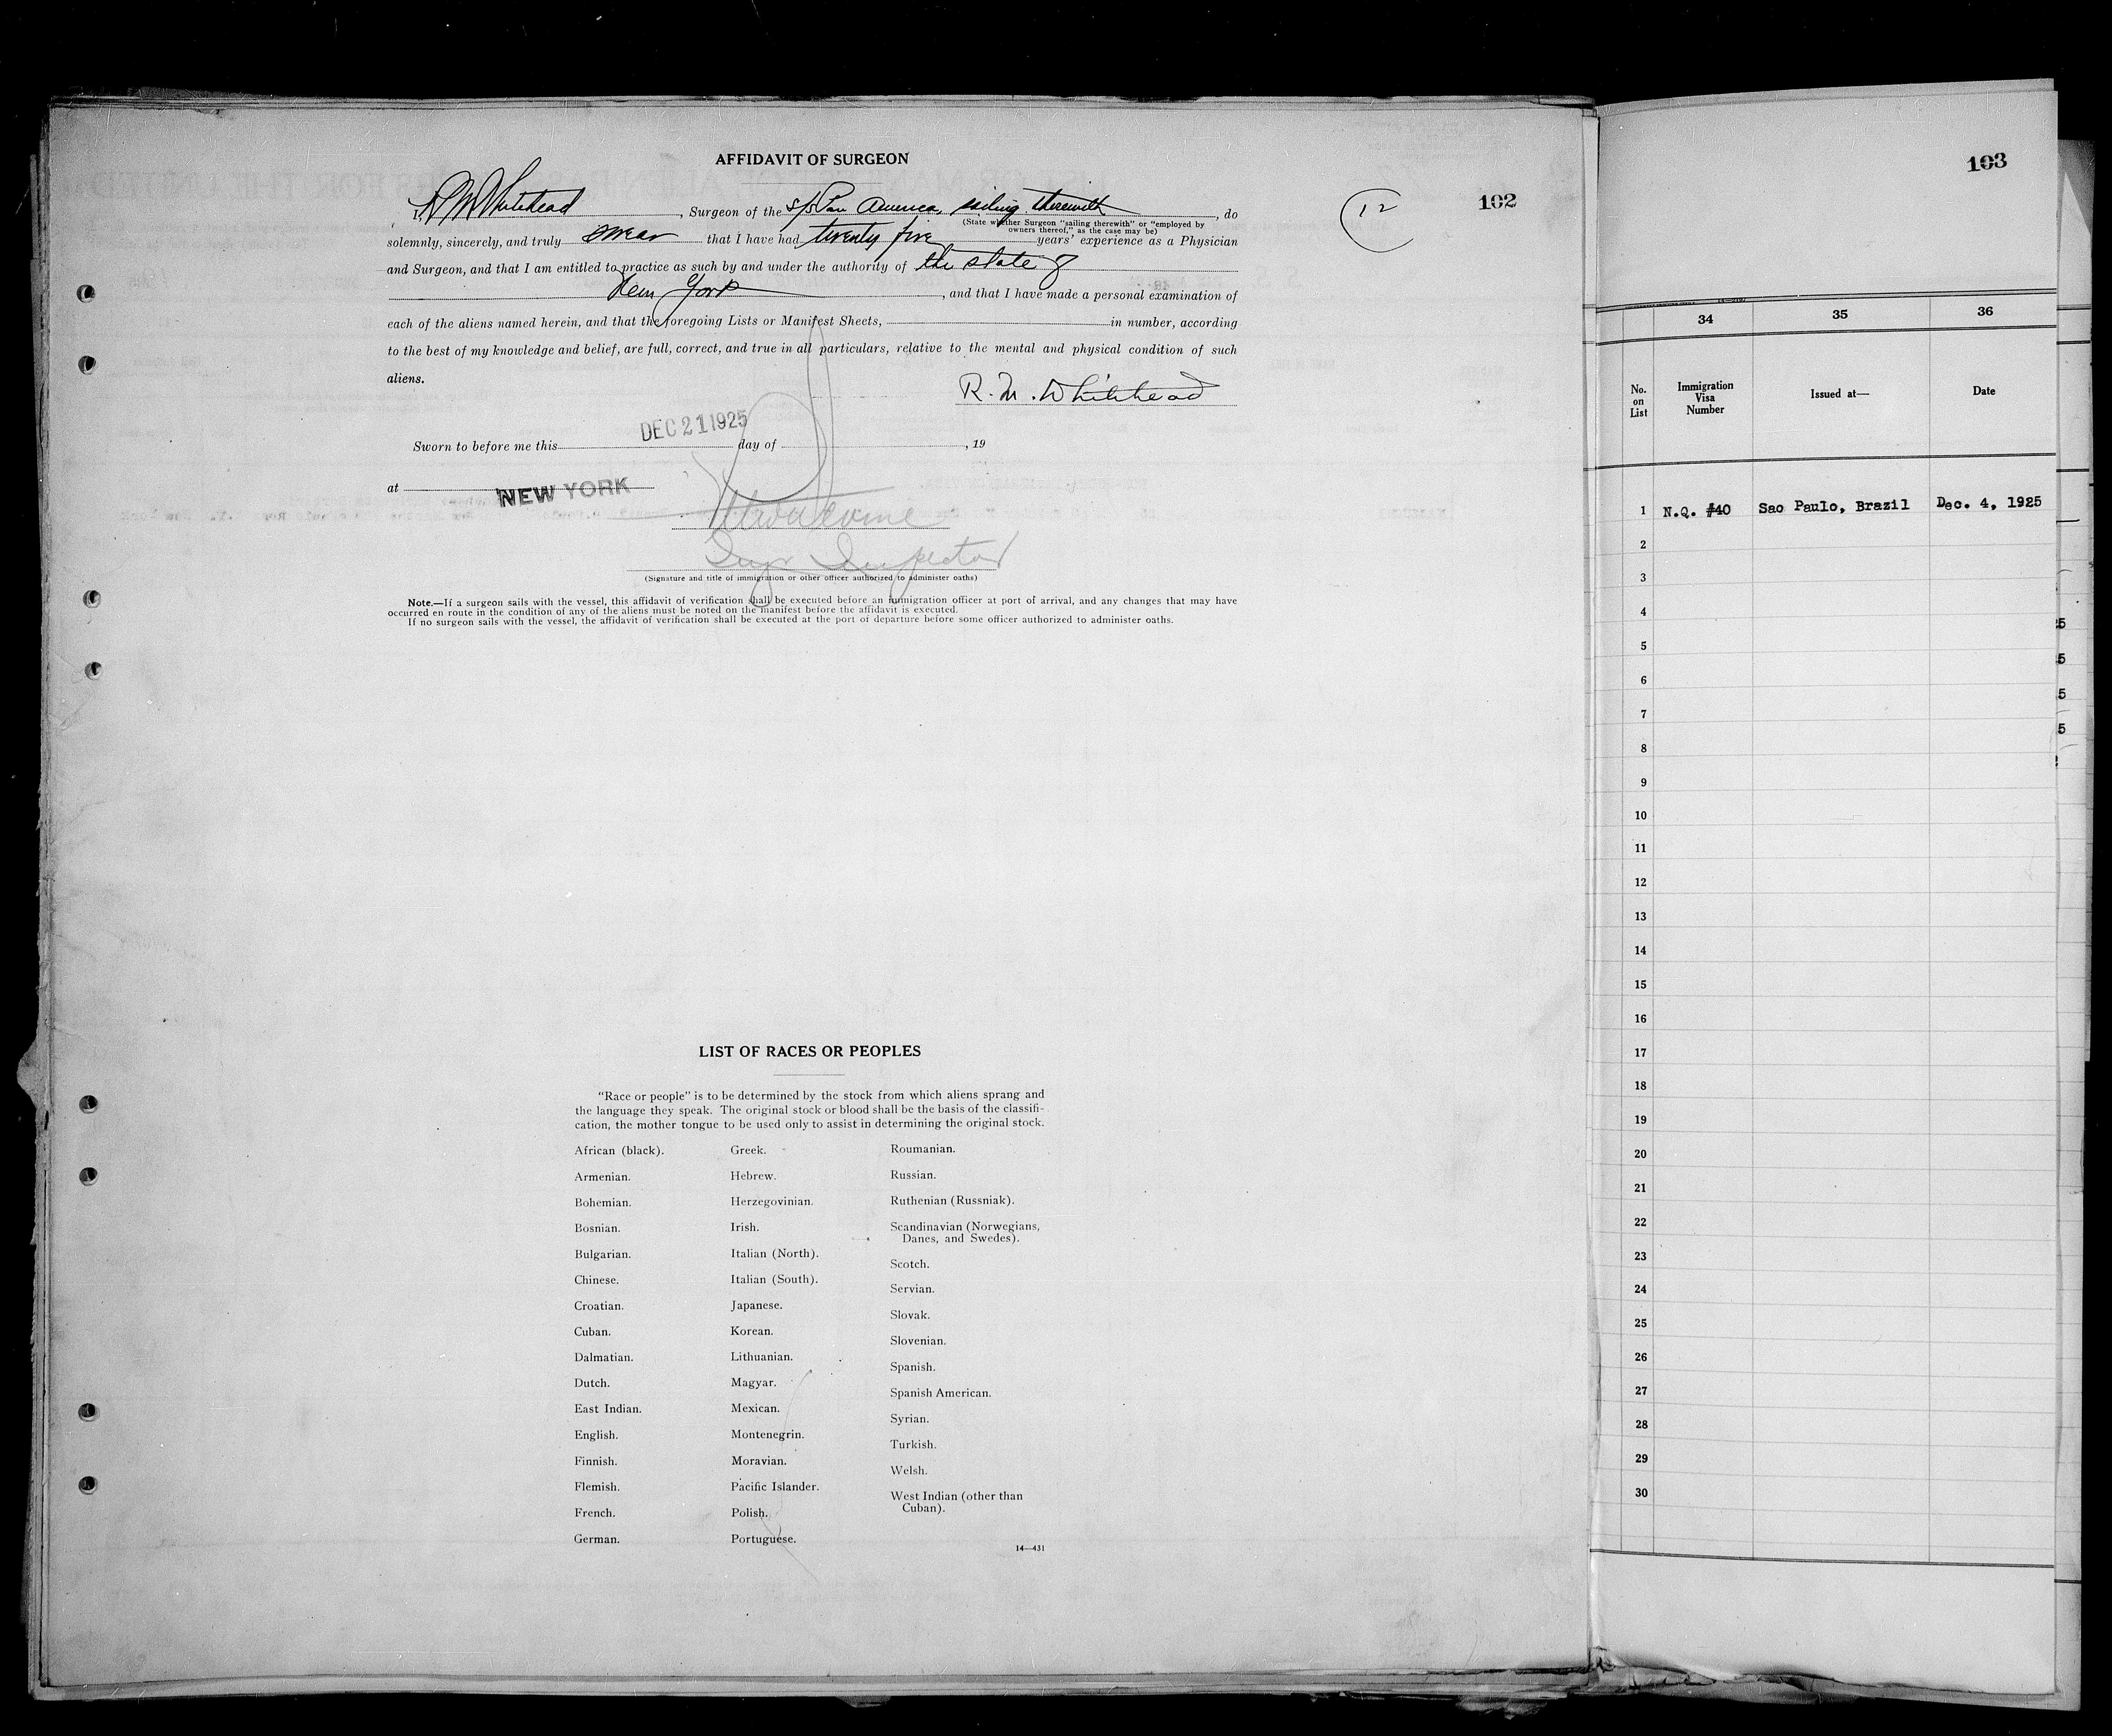 AFFIDAVIT OF SURGEON
I, R M Whitehead, Surgeon of the S/S Pan America, sailing therewith, do
(State whether Surgeon "sailing therewith" or "employed by
owners thereof," as the case may be)
solemnly, sincerely, and truly swear that I have had twenty five years' experience as a Physician
and Surgeon, and that I am entitled to practice as such by and under the authority of the state of
New York, and that I have made a personal examination of
each of the aliens named herein, and that the foregoing Lists or Manifest Sheets, in number, according
to the best of my knowledge and belief, are full, correct, and true in all particulars, relative to the mental and physical condition of such
aliens.
R. M. Whitehead
Sworn to before me this DEC 21 1925 day of , 19
at NEW YORK
Inspector
(Signature and title of immigration or other officer authorized to administer oaths)
Note.—If a surgeon sails with the vessel, this affidavit of verification shall be executed before an immigration officer at port of arrival, and any changes that may have
occurred en route in the condition of any of the aliens must be noted on the manifest before the affidavit is executed.
If no surgeon sails with the vessel, the affidavit of verification shall be executed at the port of departure before some officer authorized to administer oaths.
12
102
LIST OF RACES OR PEOPLES
"Race or people" is to be determined by the stock from which aliens sprang and
the language they speak. The original stock or blood shall be the basis of the classifi-
cation, the mother tongue to be used only to assist in determining the original stock.
African (black).
Armenian.
Bohemian.
Bosnian.
Bulgarian.
Chinese.
Croatian.
Cuban.
Dalmatian.
Dutch.
East Indian.
English.
Finnish.
Flemish.
French.
German.
Greek.
Hebrew.
Herzegovinian.
Irish.
Italian (North).
Italian (South).
Japanese.
Korean.
Lithuanian.
Magyar.
Mexican.
Montenegrin.
Moravian.
Pacific Islander.
Polish.
Portuguese.
Roumanian.
Russian.
Ruthenian (Russniak).
Scandinavian (Norwegians,
Danes, and Swedes).
Scotch.
Servian.
Slovak.
Slovenian.
Spanish.
Spanish American.
Syrian.
Turkish.
Welsh.
West Indian (other than
Cuban).
14—431
103
34 35 36
No.
on
List
Immigration
Visa
Number
Issued at—
Date
1 N.Q. #40 Sao Paulo, Brazil Dec. 4, 1925
2
3
4
5
6
7
8
9
10
11
12
13
14
15
16
17
18
19
20
21
22
23
24
25
26
27
28
29
30